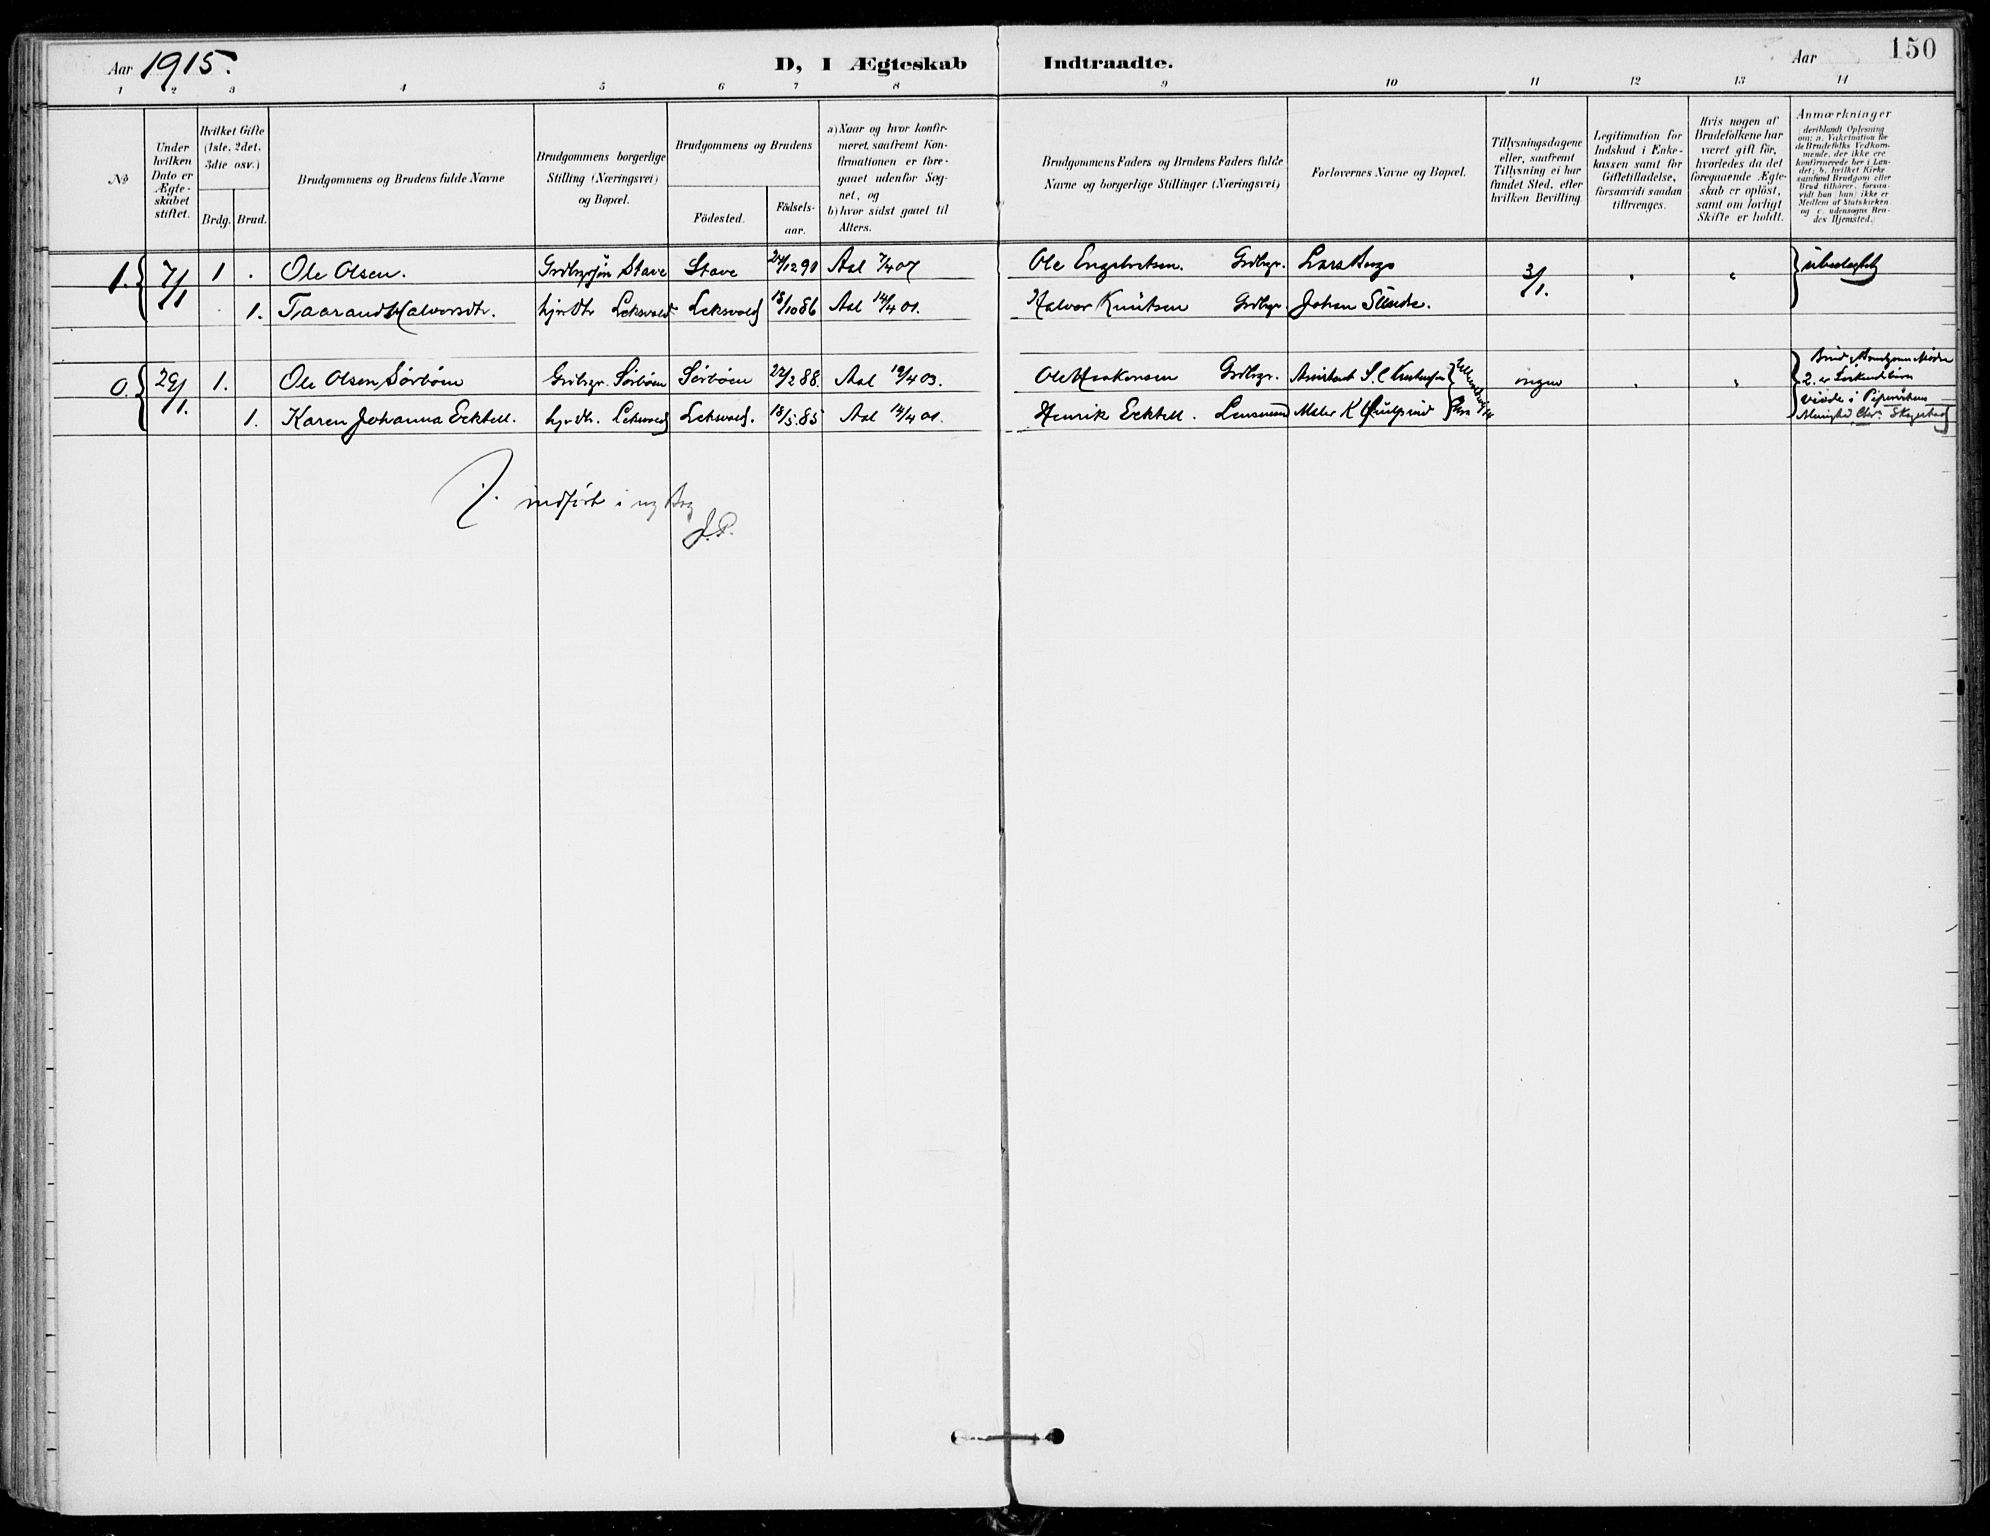 Aar 1915. D, I Ægteskab Indtraadte. Aar 150
1 2 3 4 5 6 7 8 9 10 11 12 13 14
№
Under hvilken Dato er Ægteskabet stiftet.
Hvilket Gifte (1ste, 2det, 3die osv.)
Brdg. Brud.
Brudgommens og Brudens fulde Navne
Brudgommens borgerlige Stilling (Næringsvei) og Bopæl.
Brudgommens og Brudens
Födested. Födselsaar.
a) Naar og hvor konfirmeret, saafremt Konfirmationen er foregaaet udenfor Sognet, og
b) hvor sidst gaaet til Alters.
Brudgommens Faders og Brudens Faders fulde Navne og borgerlige Stillinger (Næringsvei)
Forlovernes Navne og Bopæl.
Tillysningsdagene eller, saafremt Tillysning ei har fundet Sted, efter hvilken Bevilling.
Legitimation for Indskud i Enkekassen samt for Giftetilladelse, forsaavidt saadan tiltrænges.
Hvis nogen af Brudefolkene har været gift før, hvorledes da det foregaaende Ægteskab er oplöst, samt om lovligt Skifte er holdt.
Anmærkninger (deriblandt Oplysning om: a. Vakcination for de Brudefolks Vedkommende, der ikke ere konfirmerede her i Landet; b. hvilket Kirkesamfund Brudgom eller Brud tilhører, forsaavidt han (hun) ikke er Medlem af Statskirken, og c. udensogns Brudes Hjemsted.)
1. 7/1 1 . Ole Olsen. Stave Stave 24/12 90 Aal 7/4 07 Ole Engebretsen. Grdbrgr. Lars Berge 3/1. " " ubeslægtet
1. Taarand Halvorsdtr. hjv Dtr Leksvold Leksvold 18/10 86 Aal 14/4 01. Halvor Knutsen Grdbgr Johan Sundre.
0. 29/1. 1. Ole Olsen Sörböen Grdbrgr. Sörböen Sörböen 22/2 88. Aal 19/4 03. Ole Haakonsen Grdbrgr. ingen " "
1. Karen Johanna Ecktell. hjv dtr. Leksvold Leksvold. 18/5 85 Aal 14/4 01. Henrik Ecktell. Lensmand Maler K
indført i ny Bog
J.P.